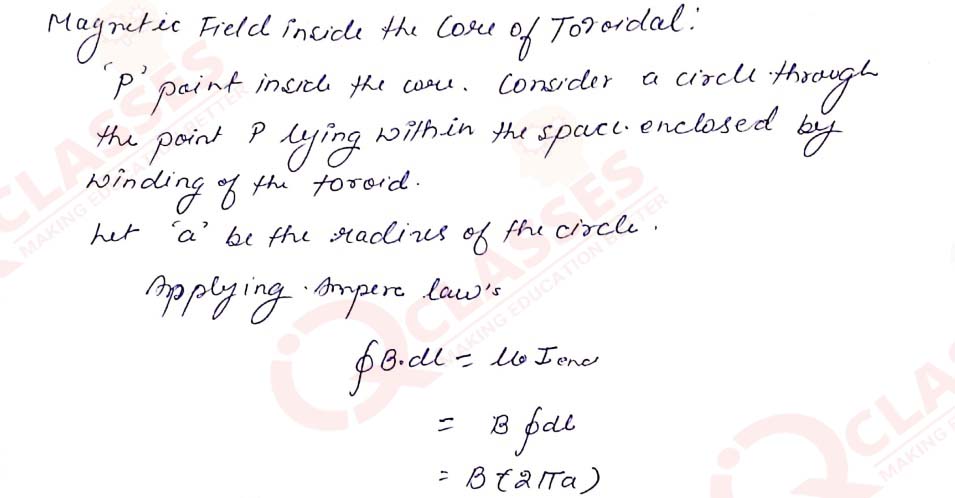 Magnetic Field inside the Core of Toroidal:
'P' point inside the core. Consider a circle through
the point P lying within the space enclosed by
winding of the toroid.
Let 'a' be the radius of the circle.
Applying Ampere law's
∮B.dl = μ0 Ienc
= B ∮dl
= B(2πa)
iQ CLASSES
MAKING EDUCATION BETTER